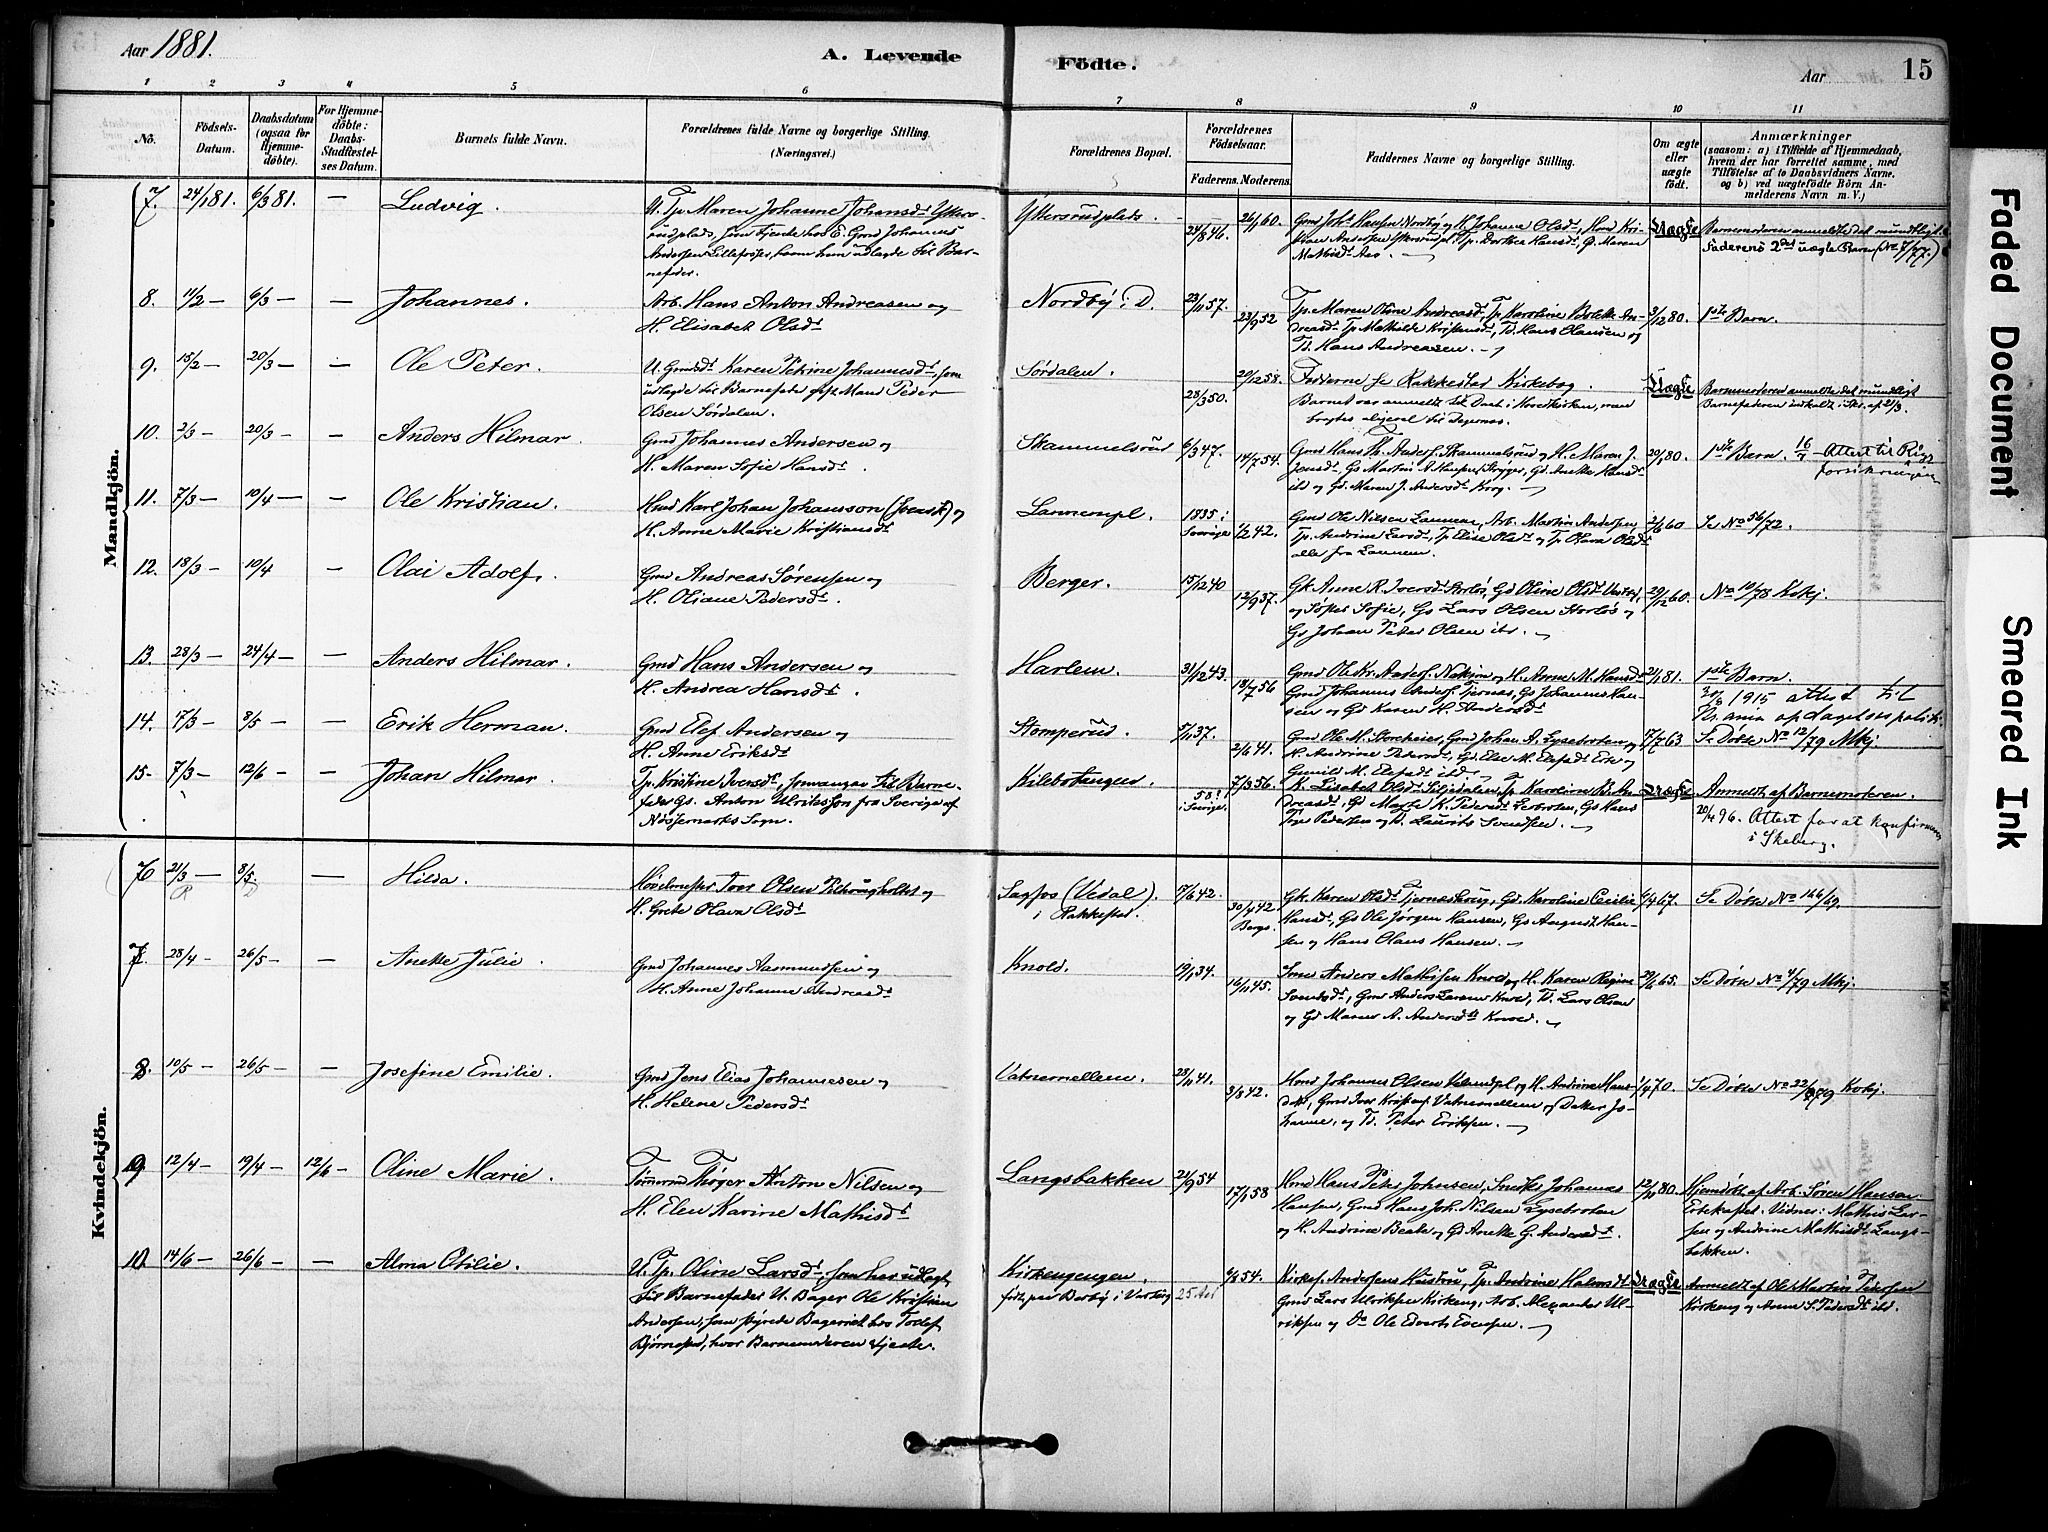 Aar 1881.
A. Levende Födte.
Aar
15
1 2 3 4 5 6 7 8 9 10 11
No.
Födsels-
Datum.
Daabsdatum
(ogsaa for
Hjemme-
döbte).
For Hjemme-
döbte:
Daabs-
Stadfæstel-
ses Datum.
Barnets fulde Navn.
Forældrenes fulde Navne og borgerlige Stilling.
(Næringsvei.)
Forældrenes Bopæl.
Forældrenes
Födselsaar.
Faderens. Moderens.
Faddernes Navne og borgerlige Stilling.
Om ægte
eller
uægte
födt.
Anmærkninger
(saasom: a) i Tilfælde af Hjemmedaab,
hvem der har forrettet samme, med
Tilföielse af to Daabsvidners Navne.
og b) ved uægtefödte Börn An-
melderens Navn m. V.)
Mandkjön.
7. 24/1 81. 6/3 81. — Ludvig.
U. Tp. Maren Johanne Johansdt Ytters-
rudplads, som tjente hos E. Gmd Johannes
Andersen Lillefoser, hvem hun udlagde til Bar-
nefader.
Yttersrudplads.
24/8 46. 26/1 60.
Gmd Johs Hansen Nordby og H. Johanne Olsdt, Hmd Kri-
stian Andersen Yttersrudpl, Tp. Dorthea Hansdt, G. Maren
Mathilde Aas.
Uægte
Barnemoderen anmeldte det mundtligt.
Faderens 2det uægte Barn (No 7/77.)
8. 11/2 — 6/3 — — Johannes.
Arb. Hans Anton Andreasen og
H. Elisabet Olsdt
Nordby i D.
23/11 57. 23/9 52
Tp. Maren Oline Andreasdt, Tp. Karoline Bolette An-
dreasdt, Tp. Mathilde Kristiansdt, Td. Hans Olausen og
Td. Hans Andreasen.
3/12 80. 1ste Barn.
9. 15/2 — 20/3 — — Ole Peter.
U. Gmdsdt Karen Petrine Johannesdt, som
udlagde til Barnefader gift Mand Peder
Olsen Sørdalen.
Sørdalen.
28/3 50. 29/12 58.
Fadderne se Rakkestad Kirkebog.
Barnet var anmeldt til Daab i Hovedkirken, men
bragtes alligevel til Degernes.
Uægte
Barnemoderen anmeldte det mundtligt
Barnefaderen indkaldt i Skr. af 21/3.
10. 2/3 — 20/3 — — Anders Hilmar.
Gmd Johannes Andersen og
H. Maren Sofie Hansdt.
Skammelsrud
6/3 47. 14/7 54.
Gmd Hans Th. Anders. Skammelsrud og H. Maren J.
Jensdt, Gs Martin A. Hansen Stryger, Gd. Anette Hansdt
ibd og Gd. Maren J. Andersdt Krog.
20/1 80. 1ste Barn. 16/7 Attest til Rigs
forsikringen
11. 7/3 — 10/4 — — Ole Kristian.
Hmd Karl Johan Johansson (svensk) og
H. Anne Marie Kristiansdt
Lannempl.
1835 i
Sverige 1/2 42.
Gmd Ole Nilsen Lannem, Arb. Martin Andersen,
Tp. Andrine Larsdt, Tp Elise Olsdt og Tp. Olava Olsdt
alle fra Lannem.
2/6 60 Se No 56/72.
12. 18/3 — 10/4 — Olai Adolf.
Gmd Andreas Sørensen og
H. Oliane Pedersdt.
Berger.
15/12 40 12/9 37.
Gk. Anne R. Iversdt Storløs, Gd Oline Olsdt
og Søster Sofie, Gs Lars Olsen Storløs og
Gs Johan Peter Olsen ibd.
29/12 60. No 10/78 Kvkj.
13. 28/3 — 24/4 — Anders Hilmar.
Gmd Hans Andersen og
H. Andrea Hansdt.
Harlem.
31/12 43. 18/7 56
Gmd Ole Kr. Anders. Nakkim og H. Anne M. Hansdt
Gmd Johannes Anders. Tjernæs, Gs Johannes Han-
sen og Gd Karen H. Andersdt
21/1 81. 1ste Barn.
20/8 1915 attest til
Kr.ania opdagelsespoliti.
14. 17/3 — 8/5 — Erik Herman.
Gmd Elef Andersen og
H. Anne Eriksdt
Stomperud.
5/1 37. 2/6 41.
Gmd Ole M. Storeheier, Gmd Johan A. Lysebroten og
H. Andrine Pedersdt, Gd. Else M. Elefsdt Erte og
Gunild M. Elefsdt ibd.
7/7 63 Se Døbte No 12/79 Mkj.
15. 7/3 — 12/6 — Johan Hilmar.
Tp. Kristine Iversdt, som angav til Barne-
fader Gs. Anton Ulriksson fra Sverige af
Nössemarks Sogn.
Kileboltangen.
58?
Sverige. 7/3 56.
K. Lisabet Olsdt Liljedalen, Tp. Karoline B. An-
dreasdt, Gd Marte K. Pedersdt Lebroten, Gs Hans
Thor Pedersen og D. Laurits Svendsen.
Uægte
Anmeldt af Barnemoderen.
20/4 96. Attest for at konfirmeres
i Skeberg.
Kvindekjön.
6 21/3 — 8/5. — Hilda.
Høvelmester Iver Olsen og
H. Grete Olava Olsdt
Sagfos (Vedal).
i Rakkestad.
17/6 42. 30/4 42
Bergs.
Gk. Karen Olsdt Tjernæskrog, Gd Karoline Cecilie
Hansdt, Gs Ole Jørgen Hansen, Gs August Han-
sen og Hans Olaus Hansen.
4/4 67. Se Døbte No 166/69.
7. 28/4 — 26/5 — — Anette Julie.
Gmd Johannes Aasmundsen og
H. Anne Johanne Andreasdt.
Knold.
19/1 34. 16/11 45.
Smd Anders Mathisen Knold og H. Karen Regine
Svendsdt, Gmd Anders Larsen Knold, Td. Lars Olsen
og Gd Maren A. Andersdt Knold.
29/6 65. Se Døbte No 4/79 Mkj.
8. 10/5 — 26/5 — — Josefine Emilie.
Gmd Jens Elias Johannesen og
H. Helene Pedersdt.
Vatnemellem.
28/11 41. 3/8 42.
Hmd Johannes Olsen og H. Andrine Hans-
datr, Gmd Iver Kristens. Vatnemellem og Datter Jo-
hanne, og Td. Peter Eriksen.
1/4 70. Se Døbte No 22/79 Kvkj.
9. 12/4 — 19/4 — 12/6 — Oline Marie.
Tømmermd Thøger Anton Nilsen og
H. Elen Karine Mathisdt
Langsbakken
21/9 54 17/1 58
Hmd Hans Peter Johansen, Snedker Johannes
Hansen, Gmd Hans Joh. Nilsen Lysebroten
og H. Andrine Beate og Gd Anette G. Andersdt.
12/11 80. Hjemdøbt af Arb. Søren Hansen
Ertekapel. Vidner: Mathis Lar-
sen og Andrine Mathisdt Langs-
bakken.
10. 14/6 — 26/6 — — Alma Otilie.
U. Tp. Oline Larsdt, som har udlagt
til Barnefader U. Bager Ole Kristian
Andersen, som styrede Bageriet hos Tollef
Bjørnstad, hvor Barnemoderen tjente.
Kirkengengen.
født paa Berby i Varteig
25 Aar 6/8 54.
Kirkes. Andersens Hustru, Tp. Andrine Halvorsdt
Gmd Lars Ulriksen Kirkeng, Arb. Alexander Ul-
riksen og Do Ole Edvart Evensen.
Uægte
Anmeldt af Ole Martin Pedersen
Kirkeng og Anne S. Pedersdt ibd.
Faded Document
Smeared Ink